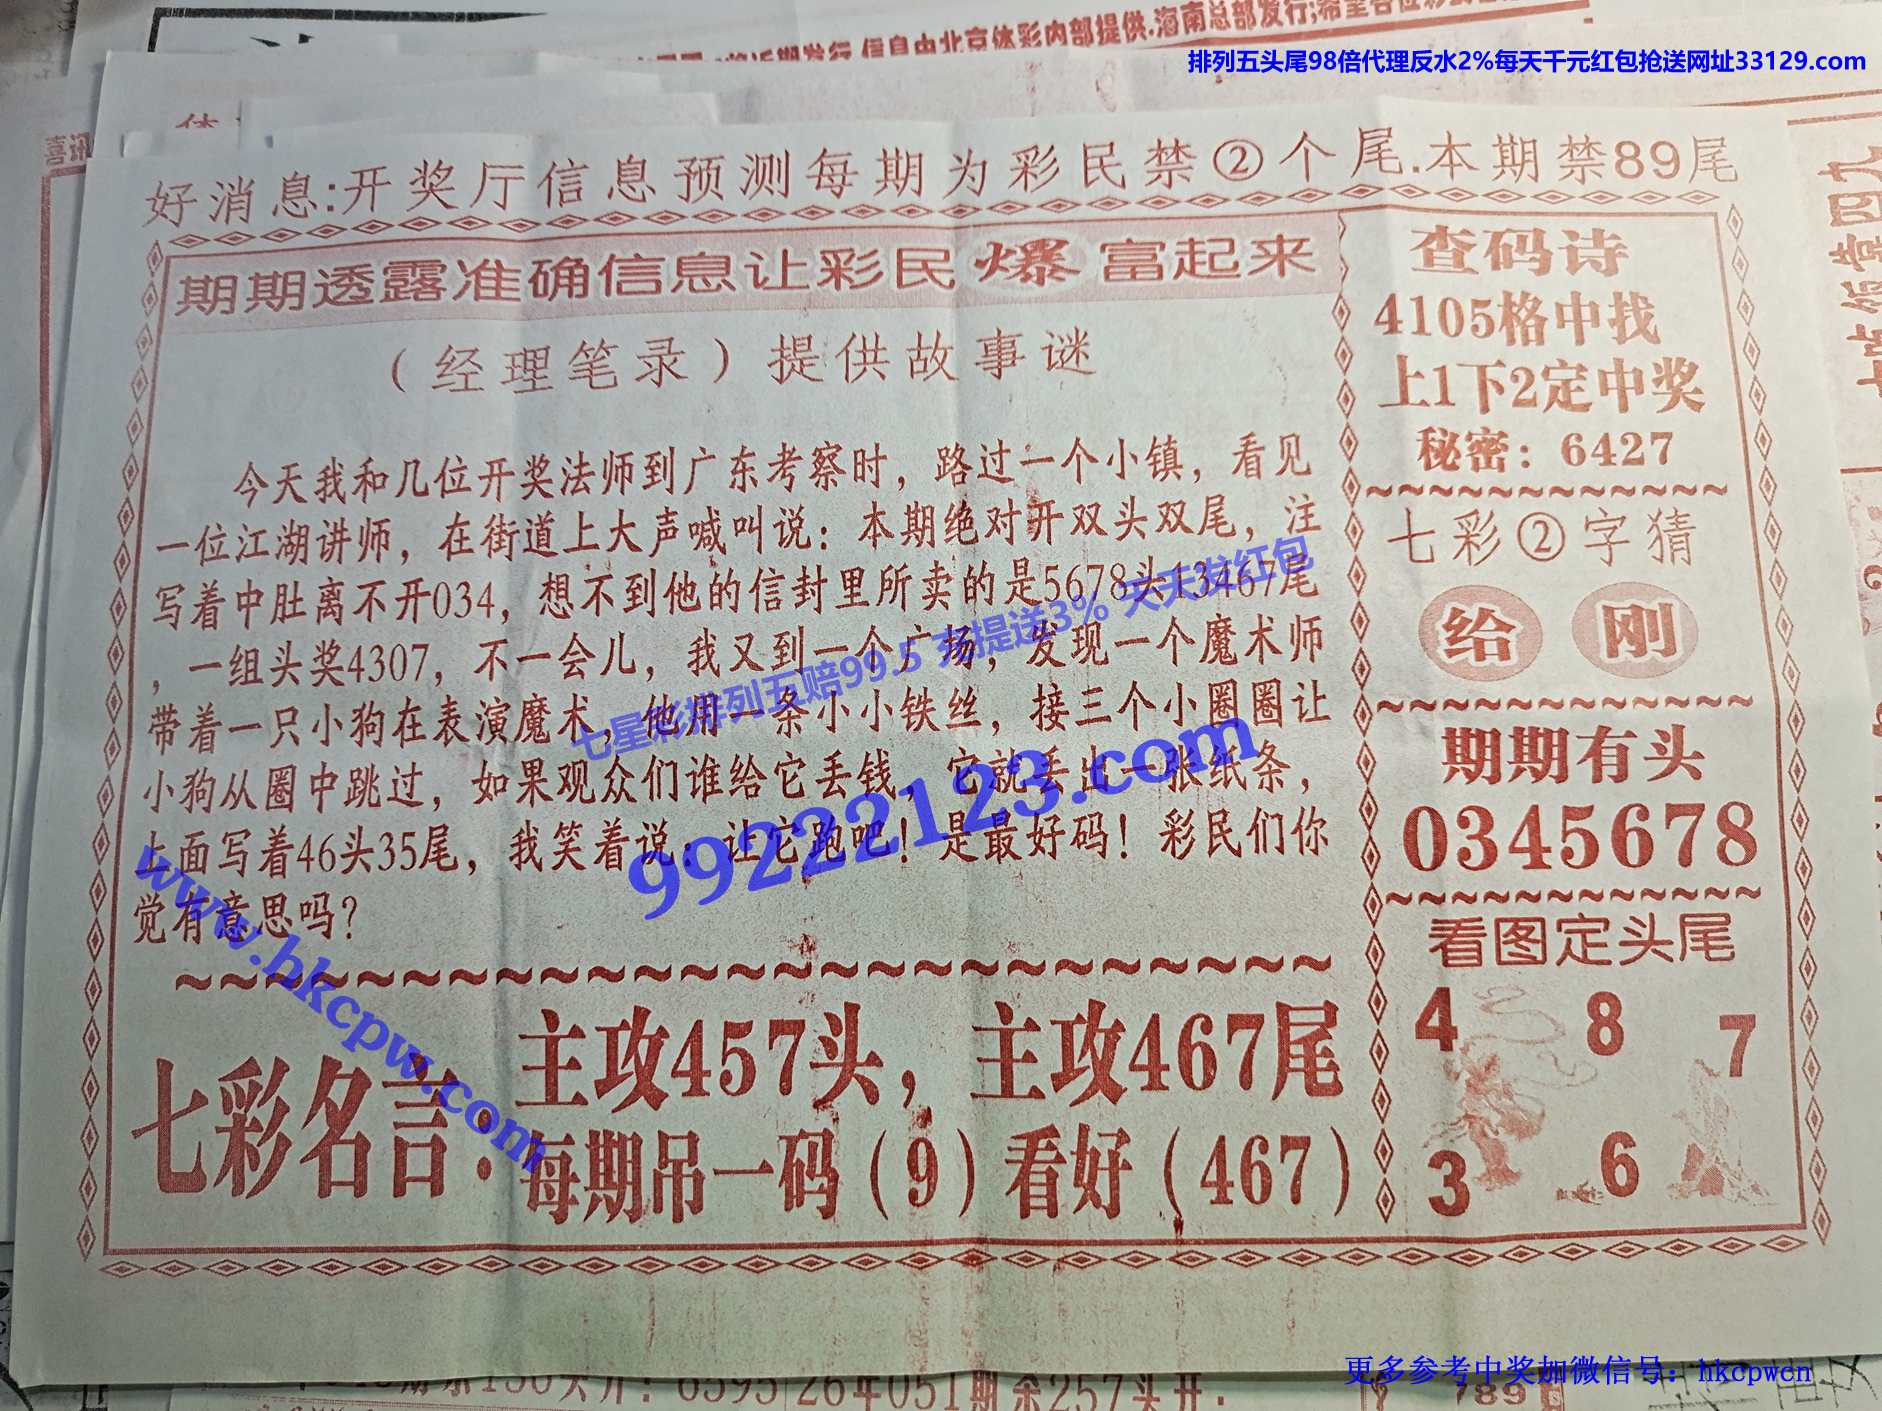 信息由北京体彩内部提供.海南总部发行;希望各位彩
排列五头尾98倍代理反水2%每天千元红包抢送网址33129.com
喜讯
好消息:开奖厅信息预测每期为彩民禁②个尾.本期禁89尾
期期透露准确信息让彩民爆富起来
（经理笔录）提供故事谜
今天我和几位开奖法师到广东考察时，路过一个小镇，看见
一位江湖讲师，在街道上大声喊叫说：本期绝对开双头双尾，注
写着中肚离不开034，想不到他的信封里所卖的是5678头13467尾
，一组头奖4307，不一会儿，我又到一个广场，发现一个魔术师
带着一只小狗在表演魔术，他用一条小小铁丝，接三个小圈圈让
小狗从圈中跳过，如果观众们谁给它丢钱，它就丢出一张纸条，
上面写着46头35尾，我笑着说：让它跑吧！是最好码！彩民们你
觉有意思吗？
七彩名言：
主攻457头，主攻467尾
每期吊一码（9）看好（467）
查码诗
4105格中找
上1下2定中奖
秘密：6427
七彩②字猜
给 刚
期期有头
0345678
看图定头尾
4 8 7
3 6
七星彩排列五赔99.5 充提送3% 天天发红包
99222123.com
www.hkcpw.com
更多参考中奖加微信号：hkcpwcn
26年051期杀257头开：
789